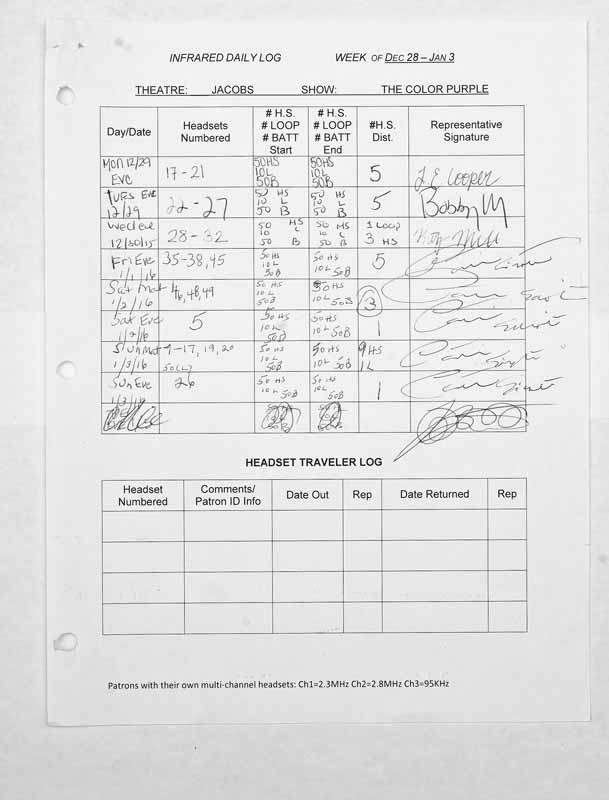 INFRARED DAILY LOG WEEK OF DEC 28 – JAN 3
THEATRE: JACOBS SHOW: THE COLOR PURPLE
Day/Date Headsets Numbered # H.S. # LOOP # BATT Start # H.S. # LOOP # BATT End #H.S. Dist. Representative Signature
MON 12/29 EVE 17-21 50HS 10L 50B 50HS 10L 50B 5 J.E Cooper
TUES EVE 12/29 22-27 50 HS 10 L 50 B 50 HS 10 L 50 B 5 Bobby M
Wed Eve 12/30/15 28-32 50 HS 10 L 50 B 50 HS 10 L 50 B 1 LOOP 3 HS
Fri Eve 1/1/16 35-38,45 50HS 10L 50B 50HS 10L 50B 5
Sat Mat 1/2/16 46,48,49 50HS 10L 50B 50HS 10L 50B 3
Sat Eve 1/2/16 5 50HS 10L 50B 50HS 10L 50B 1
SUN Mat 1/3/16 9-17, 19, 20 50(L) 50HS 10L 50B 50HS 10L 50B 9HS 1L
Sun Eve 1/3/16 26 50 HS 10L 50B 50HS 10L 50B 1
HEADSET TRAVELER LOG
Headset Numbered Comments/ Patron ID Info Date Out Rep Date Returned Rep
Patrons with their own multi-channel headsets: Ch1=2.3MHz Ch2=2.8MHz Ch3=95KHz